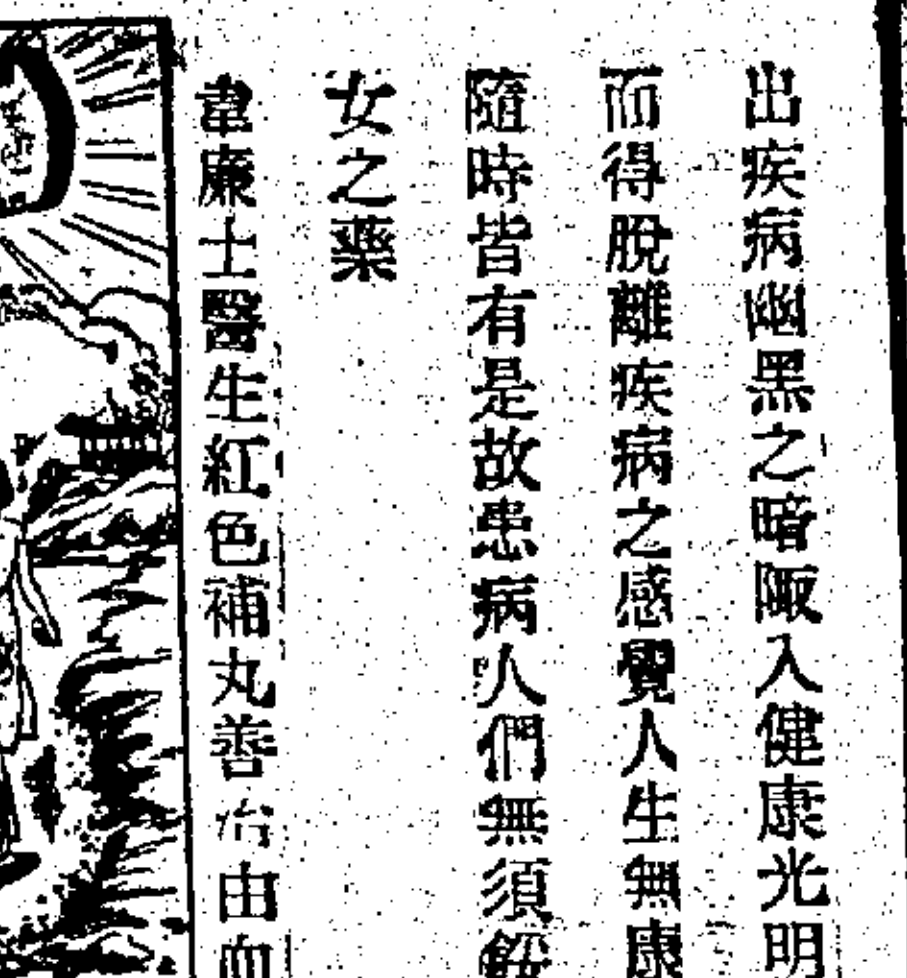 出疾病幽黑之暗陬入健康光明
而得脫離疾病之感覺人生無康
隨時皆有是故患病人們無須餒
女之藥
韋廉士醫生紅色補丸善治由血